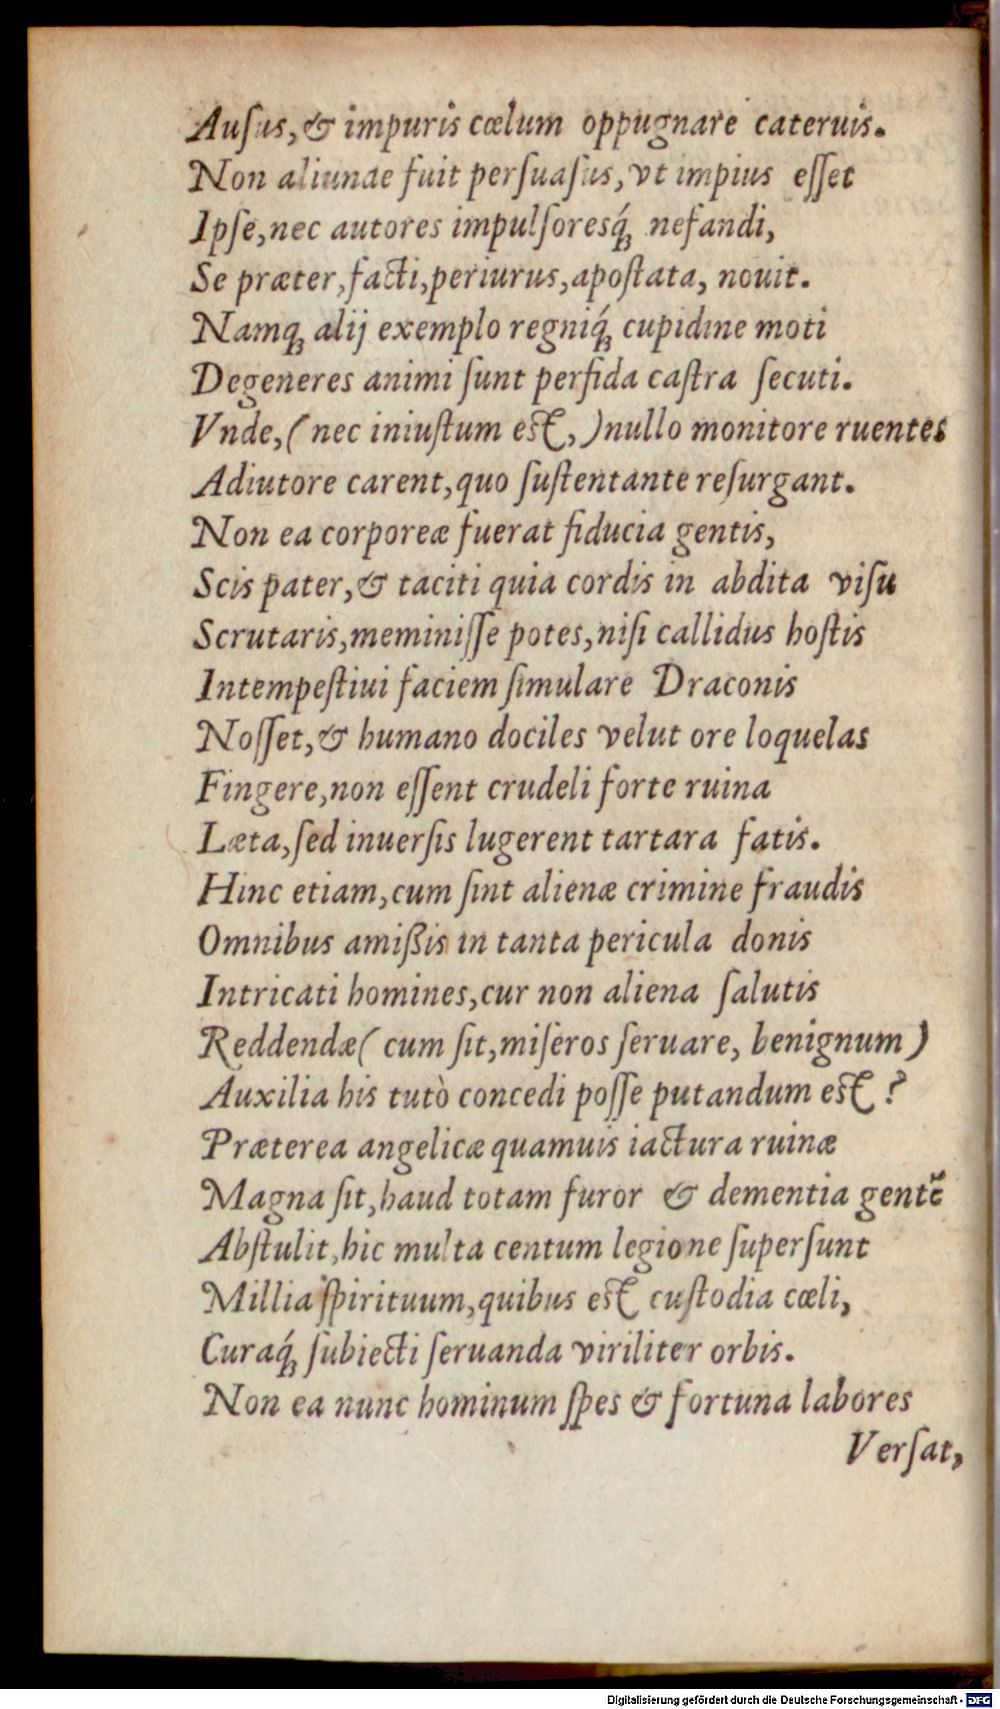 Auſus, & impuris cœlum oppugnare cateruis.
Non aliunde fuit perſuaſus, vt impius eſſet
Ipſe, nec autores impulſoresq́ꝫ nefandi,
Se præter, facti, periurus, apoſtata, nouit.
Namqꝫ alij exemplo regniq́ꝫ cupidine moti
Degeneres animi ſunt perfida caſtra ſecuti.
Vnde, ( nec iniuſtum eſt, ) nullo monitore ruentes
Adiutore carent, quo ſuſtentante reſurgant.
Non ea corporeæ fuerat fiducia gentis,
Scis pater, & taciti quia cordis in abdita viſu
Scrutaris, meminiſſe potes, niſi callidus hoſtis
Intempeſtiui faciem ſimulare Draconis
Noſſet, & humano dociles velut ore loquelas
Fingere, non eſſent crudeli forte ruina
Læta, ſed inuerſis lugerent tartara fatis.
Hinc etiam, cum ſint alienæ crimine fraudis
Omnibus amißis in tanta pericula donis
Intricati homines, cur non aliena ſalutis
Reddendæ ( cum ſit, miſeros ſeruare, benignum )
Auxilia his tutò concedi poſſe putandum eſt ?
Præterea angelicæ quamuis iactura ruinæ
Magna ſit, haud totam furor & dementia gentẽ
Abſtulit, hic multa centum legione ſuperſunt
Millia ſpirituum, quibus eſt cuſtodia cœli,
Curaq́ꝫ ſubiecti ſeruanda viriliter orbis.
Non ea nunc hominum ſpes & fortuna labores
Verſat,
Digitalisierung gefördert durch die Deutsche Forschungsgemeinschaft - DFG